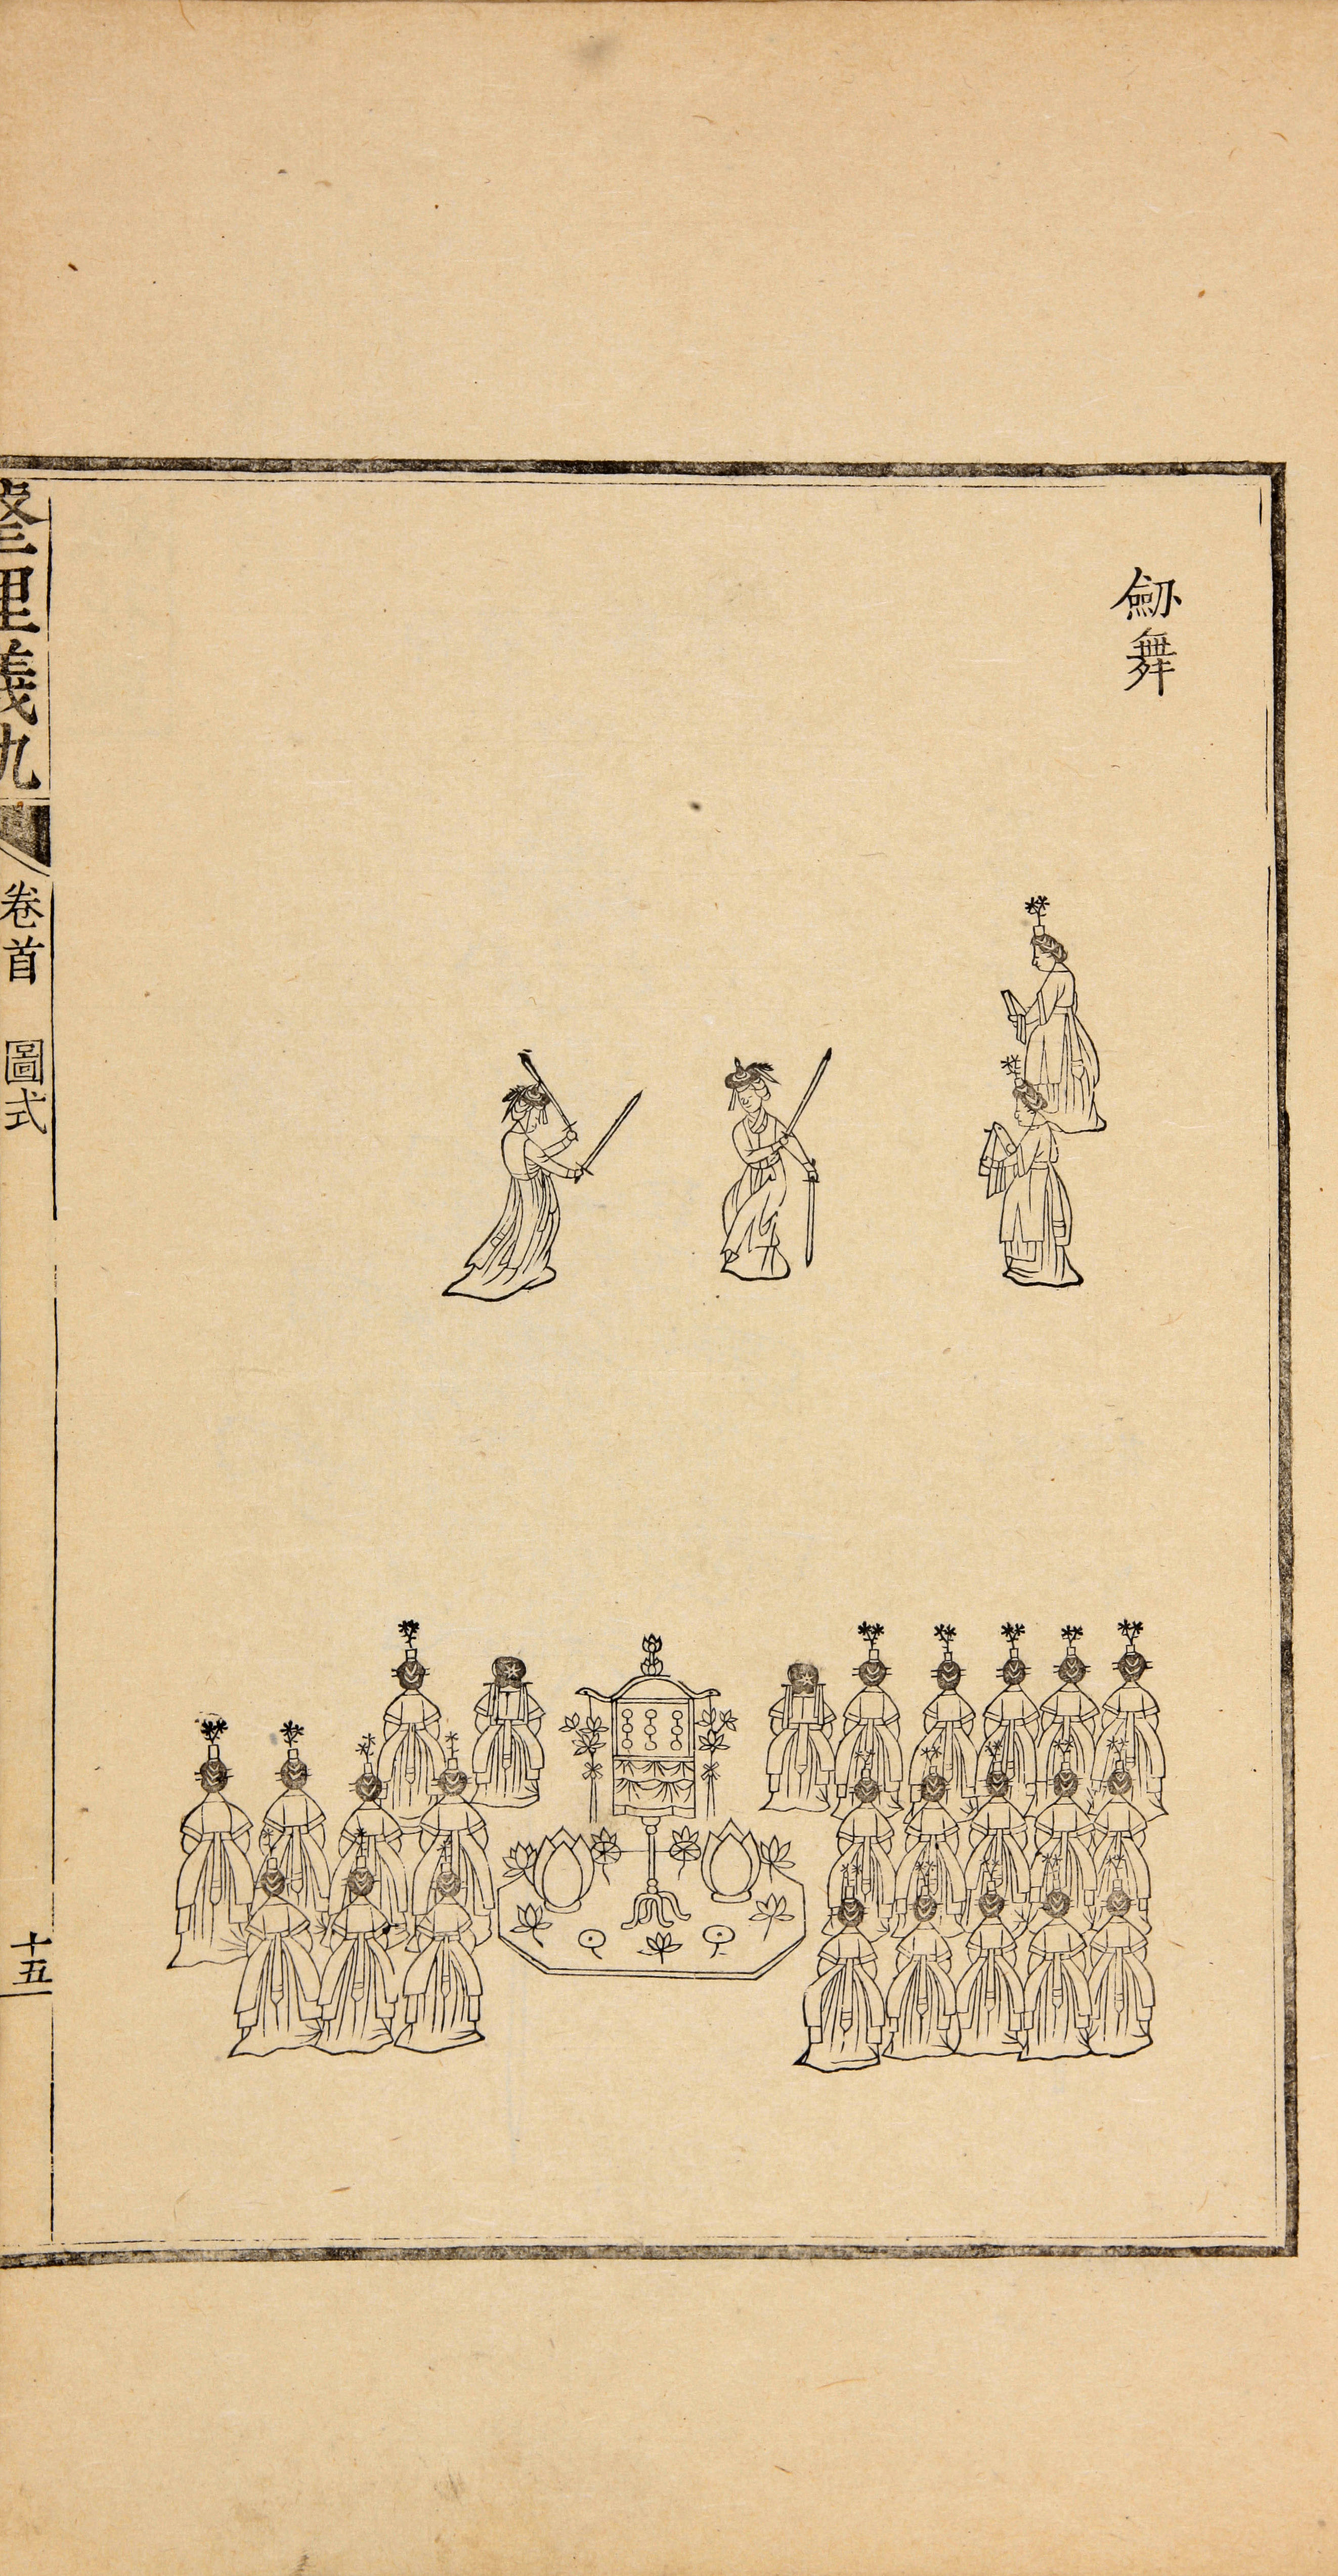 劒舞
整理儀軌
卷首 圖式
十五